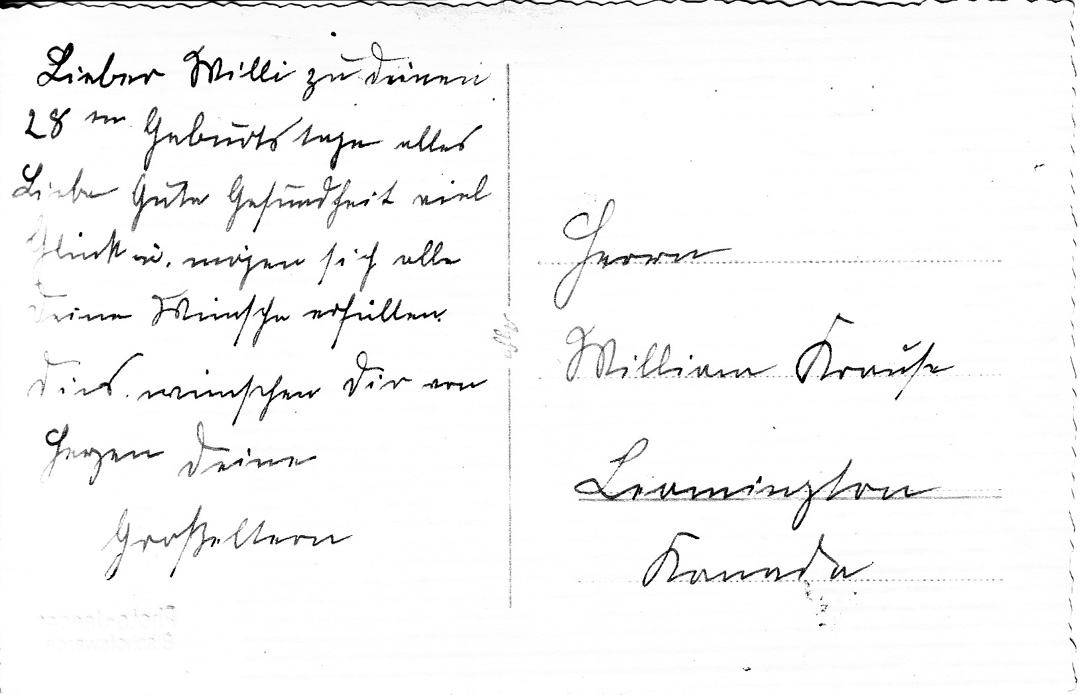 Lieber Willi zu deinen
28ten Geburtstage alles
Liebe Gute Gesundheit viel
Glück u. mögen sich alle
Deine Wünsche erfüllen.
Dies wünschen Dir von
Herzen Deine
Großeltern
Herrn
William Krause
Leamington
Kanada